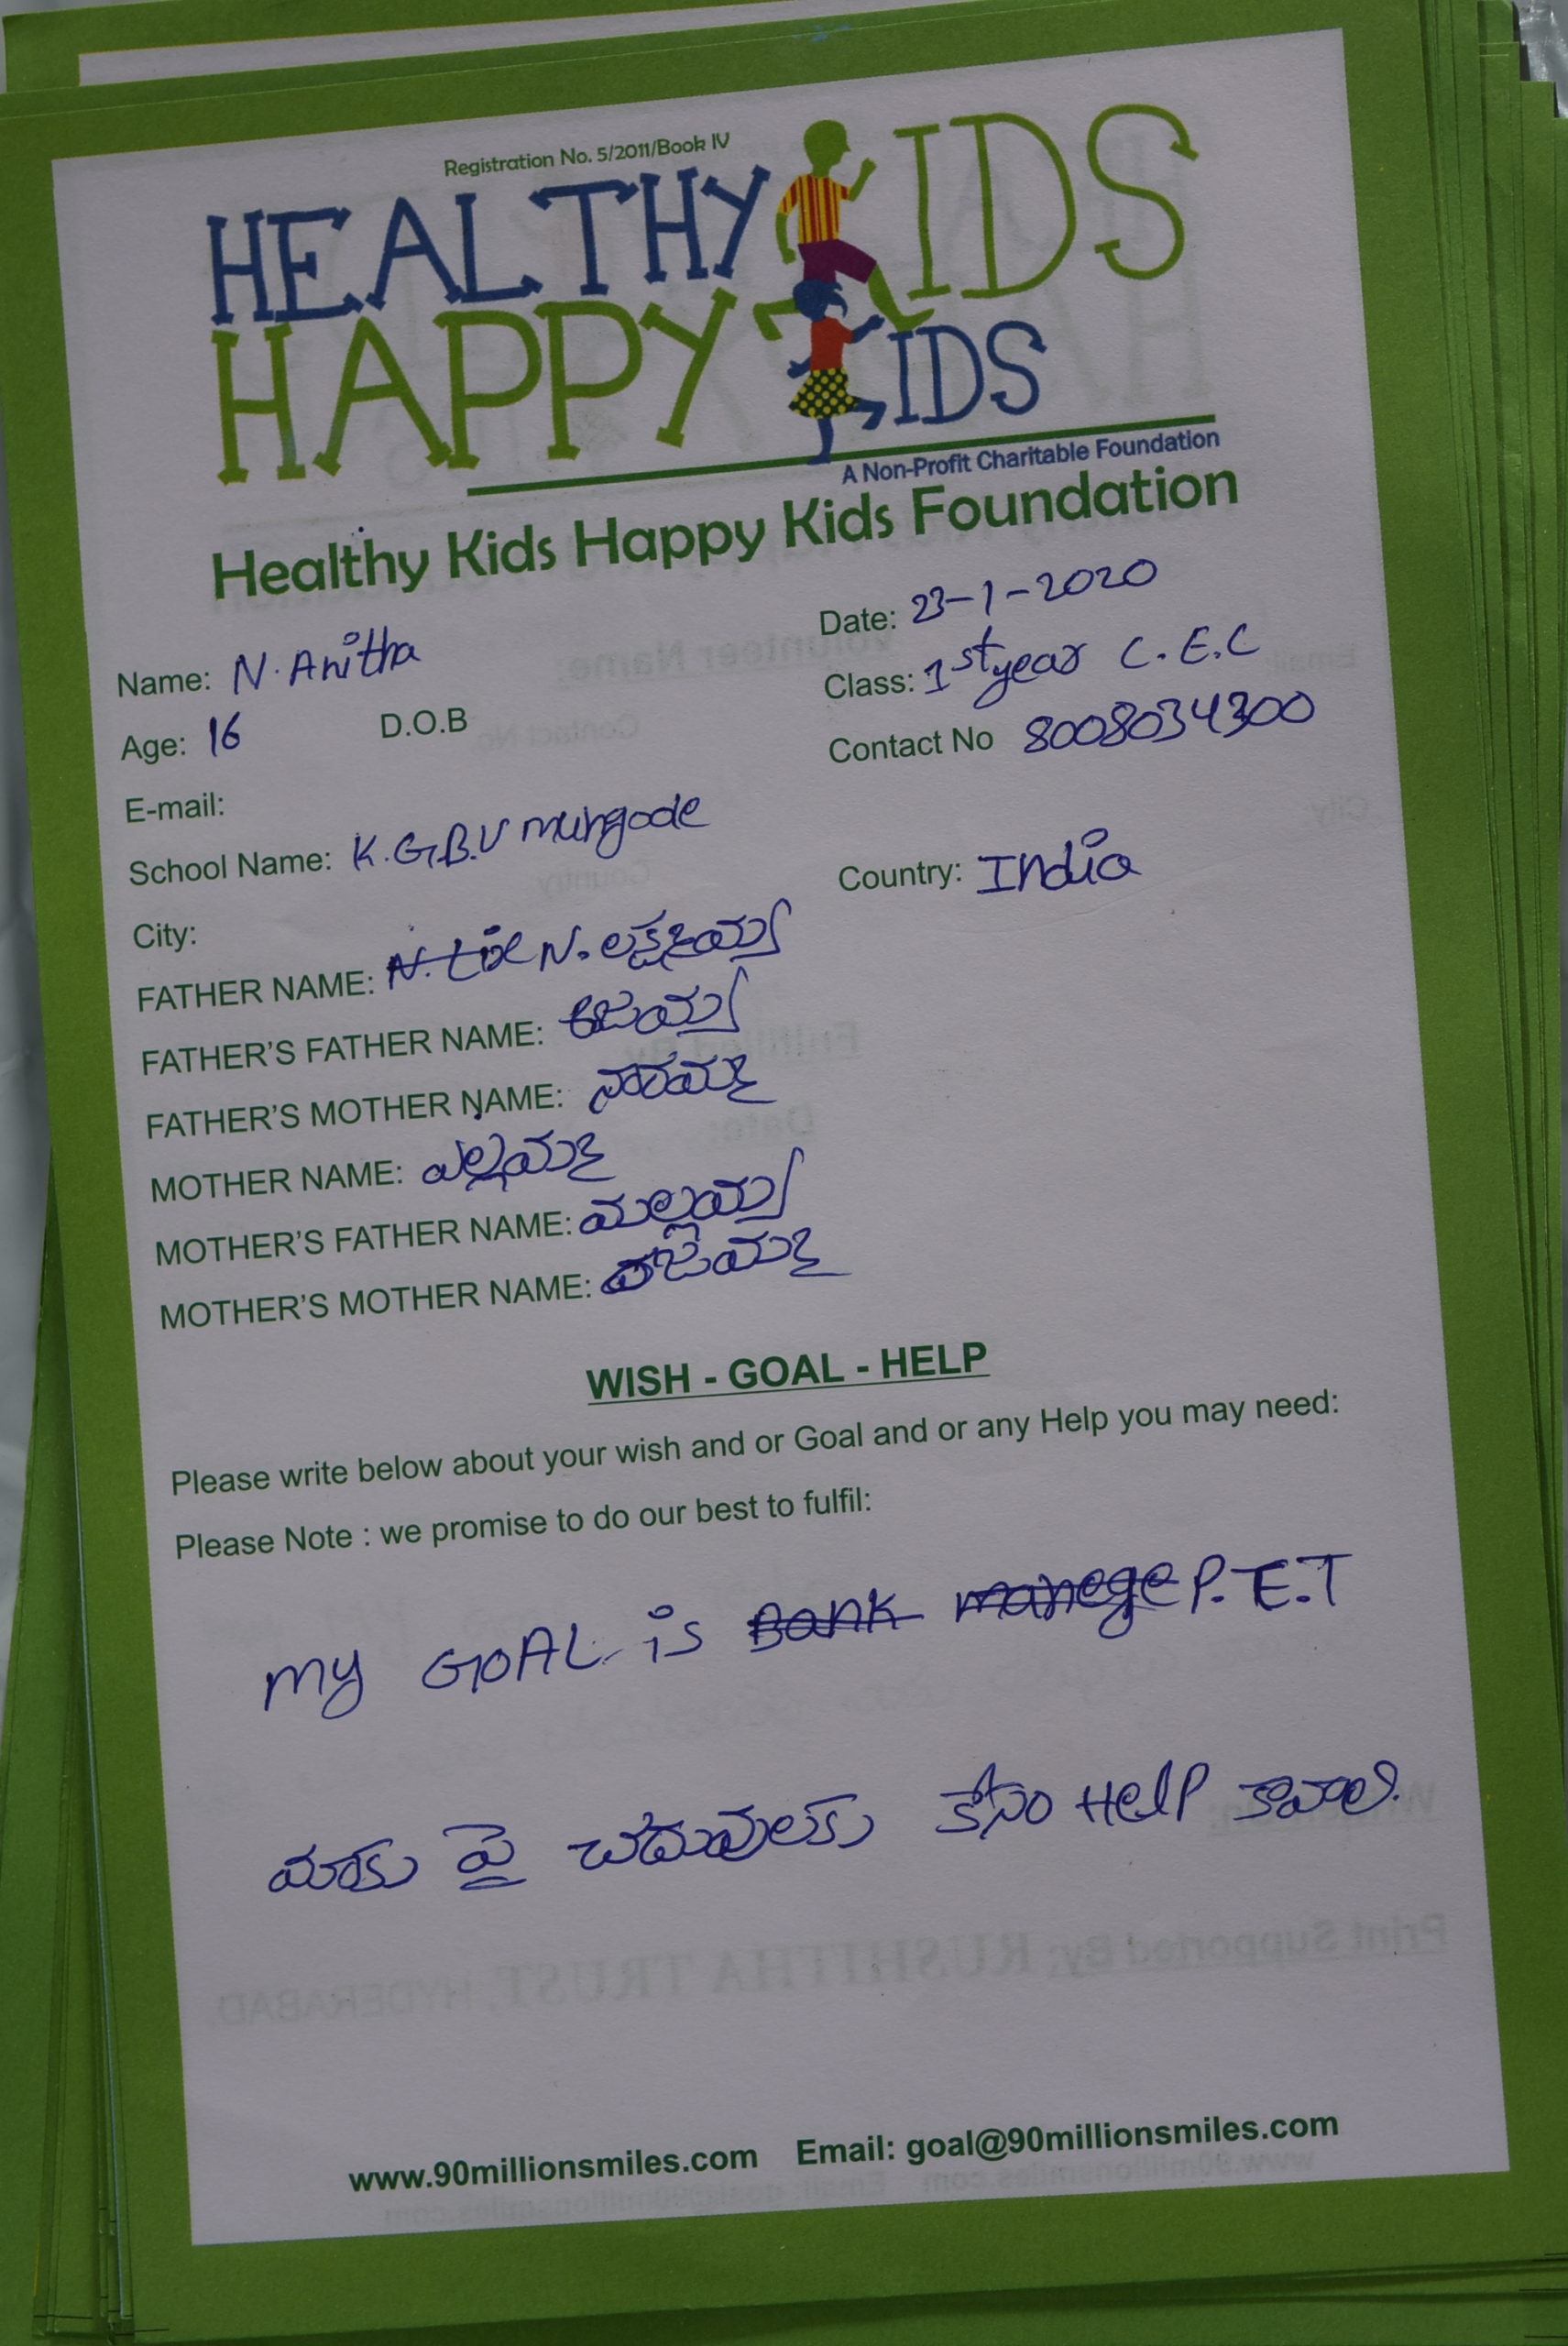 Registration No. 5/2011/Book IV
HEALTHY KIDS
HAPPY KIDS
A Non-Profit Charitable Foundation
Healthy Kids Happy Kids Foundation
Date: 23-1-2020
Name: N. Anitha
Class: 1st year C.E.C
Age: 16 D.O.B
Contact No 8008034300
E-mail:
School Name: K.G.B.V mungode
City: Country: India
FATHER NAME: N. లక్ష్మయ్య
FATHER'S FATHER NAME:
FATHER'S MOTHER NAME: నారమ్మ
MOTHER NAME: ఎల్లమ్మ
MOTHER'S FATHER NAME: మల్లయ్య
MOTHER'S MOTHER NAME:
WISH - GOAL - HELP
Please write below about your wish and or Goal and or any Help you may need:
Please Note : we promise to do our best to fulfil:
my GOAL is Bank manege P.E.T
మాకు పై చదువులకు కోసం Help కావాలి.
www.90millionsmiles.com Email: goal@90millionsmiles.com